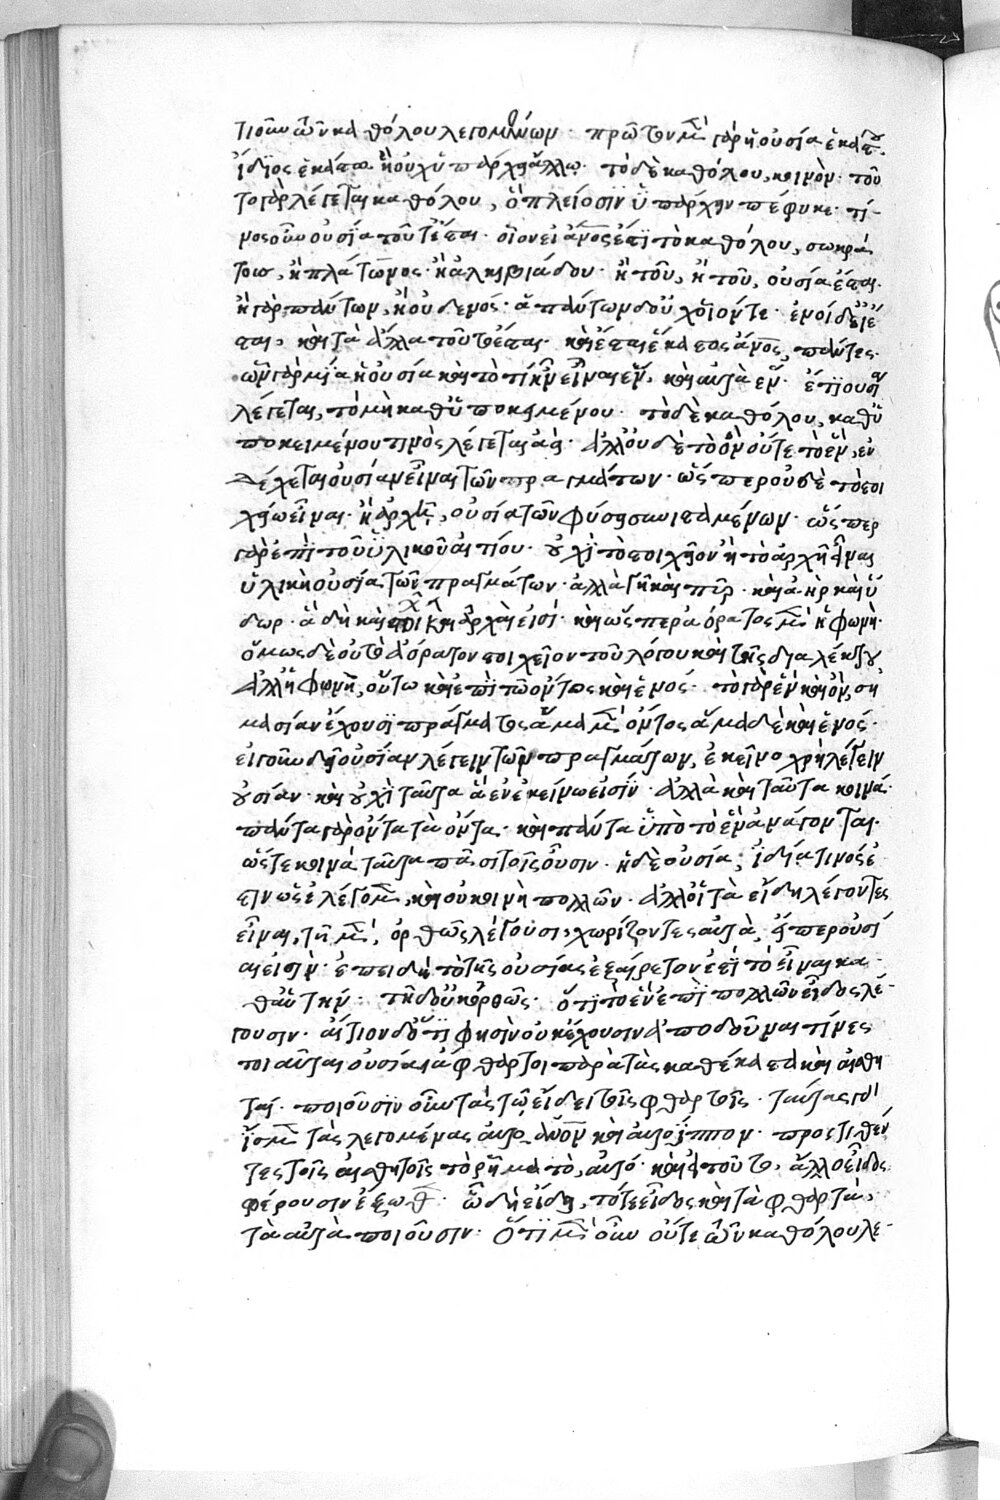 τιοῦν ὧν καθόλου λεγομένων· πρῶτον μὲν γὰρ ἡ οὐσία ἑκάστου
ἴδιος ἑκάστω ἣ οὐχ ὑπάρχει ἄλλω· τὸ δὲ καθόλου, κοινὸν· τοῦ
το γὰρ λέγεται καθόλου, ὃ πλείοσιν ὑπάρχειν πέφυκε· τί-
νος οὖν οὐσία τοῦτ' ἔσται· οἷον εἰ ἄνος ἐστὶ τὸ καθόλου, σωκρά
τους, ἢ πλάτωνος· ἢ ἀλκιβιάδου· ἢ τοῦ, ἢ τοῦ, οὐσία ἔσται·
ἢ γὰρ πάντων, ἢ οὐδενός· ἁπάντων δ' οὐχ οἷόν τε· ἑνὸς δ' εἰ ἔ
σται, καὶ τὰ ἄλλα τοῦτ' ἔσται· καὶ ἔσται ἕκαστος ἄνος, πάντες·
ὧν γὰρ μία ἡ οὐσία καὶ τὸ τί ἦν εἶναι ἓν, καὶ αὐτὰ ἓν· ἔτι οὐσία
λέγεται, τὸ μὴ καθ' ὑποκειμένου· τὸ δὲ καθόλου, καθ' ὑ
ποκειμένου τινὸς λέγεται ἀεί· ἀλλ' οὐδὲ τὸ ὂν οὔτε τὸ ἓν, ἐν
δέχεται οὐσίαν εἶναι τῶν πραγμάτων· ὥσπερ οὐδὲ τὸ στοι
χείω εἶναι· ἢ ἀρχῆ, οὐσία τῶν φύσει συνισταμένων· ὥσπερ
γὰρ ἐπὶ τοῦ ὑλικοῦ αἰτίου· οὐχὶ τὸ στοιχεῖον ἢ τὸ ἀρχὴ εἶναι
ὑλικὴ οὐσία τῶν πραγμάτων· ἀλλὰ γῆ καὶ πῦρ· καὶ ἀὴρ καὶ ὕ
δωρ· ἃ δὴ καὶ στοιχεῖα καὶ ἀρχαὶ εἰσί· καὶ ὥσπερ ἀόρατος μὲν ἡ φωνὴ·
ὅμως δὲ οὐ τὸ ἀόρατον στοιχεῖον τοῦ λόγου καὶ τῆς διαλέκτου
ἀλλ' ἡ φωνὴ, οὕτω καὶ ἐπὶ τοῦ ὄντος καὶ ἑνός· τὸ γὰρ ἓν καὶ ὂν, ση
μασίαν ἔχουσι πράγματος ἅμα μὲν ὄντος ἅμα δὲ καὶ ἑνός·
εἰ γοῦν δεῖ οὐσίαν λέγειν τῶν πραγμάτων, ἐκεῖνο χρὴ λέγειν
οὐσίαν· καὶ οὐχὶ ταῦτα ἃ ἐν ἐκείνω εἰσίν· ἀλλὰ καὶ ταῦτα κοινά·
πάντα γὰρ ὄντα τὰ ὄντα· καὶ πάντα ὑπὸ τὸ ἓν ἀνάγονται·
ὥστε κοινὰ ταῦτα πᾶσι τοῖς οὖσιν· ἡ δὲ οὐσία, ἰδία τινός ἐ
στιν ὡς ἐλέγομεν, καὶ οὐ κοινὴ πολλῶν· ἀλλ' οἱ τὰ εἴδη λέγοντες
εἶναι, τῆ μὲν, ὀρθῶς λέγουσι, χωρίζοντες αὐτὰ, εἴπερ οὐσί
αι εἰσὶν· ἐπειδὴ τὸ τῆς οὐσίας ἐξαίρετον ἐστὶ τὸ εἶναι κα-
θ' αὑτὴν· τῆ δ' οὐκ ὀρθῶς· ὅτι τὸ ἓν ἐπὶ πολλῶν εἶδος λέ-
γουσιν· αἴτιον δ' ὅτι φησὶν οὐκ ἔχουσιν ἀποδοῦναι τίνες
τοιαῦται οὐσίαι αἱ ἄφθαρτοι παρὰ τὰς καθέκαστα καὶ αἰσθη
τάς· ποιοῦσιν οὖν τὰς τῶ εἴδει τοῖς φθαρτοῖς· ταύτας γὰρ
ἴσμεν τὰς λεγομένας αὐτοάνον καὶ αὐτοΐππον· προστιθέν
τες τοῖς αἰσθητοῖς τὸ ῥῆμα τὸ, αὐτό· καὶ τοῦτο, ἄλλο εἶδος
φέρουσιν ἔξωθεν· ὧδε εἴδη, τότε εἶδος καὶ τὰ φθαρτὰ,
τὰ αὐτὰ ποιοῦσιν· Ὅτι μὲν οὖν οὔτε ὧν καθόλου λε-